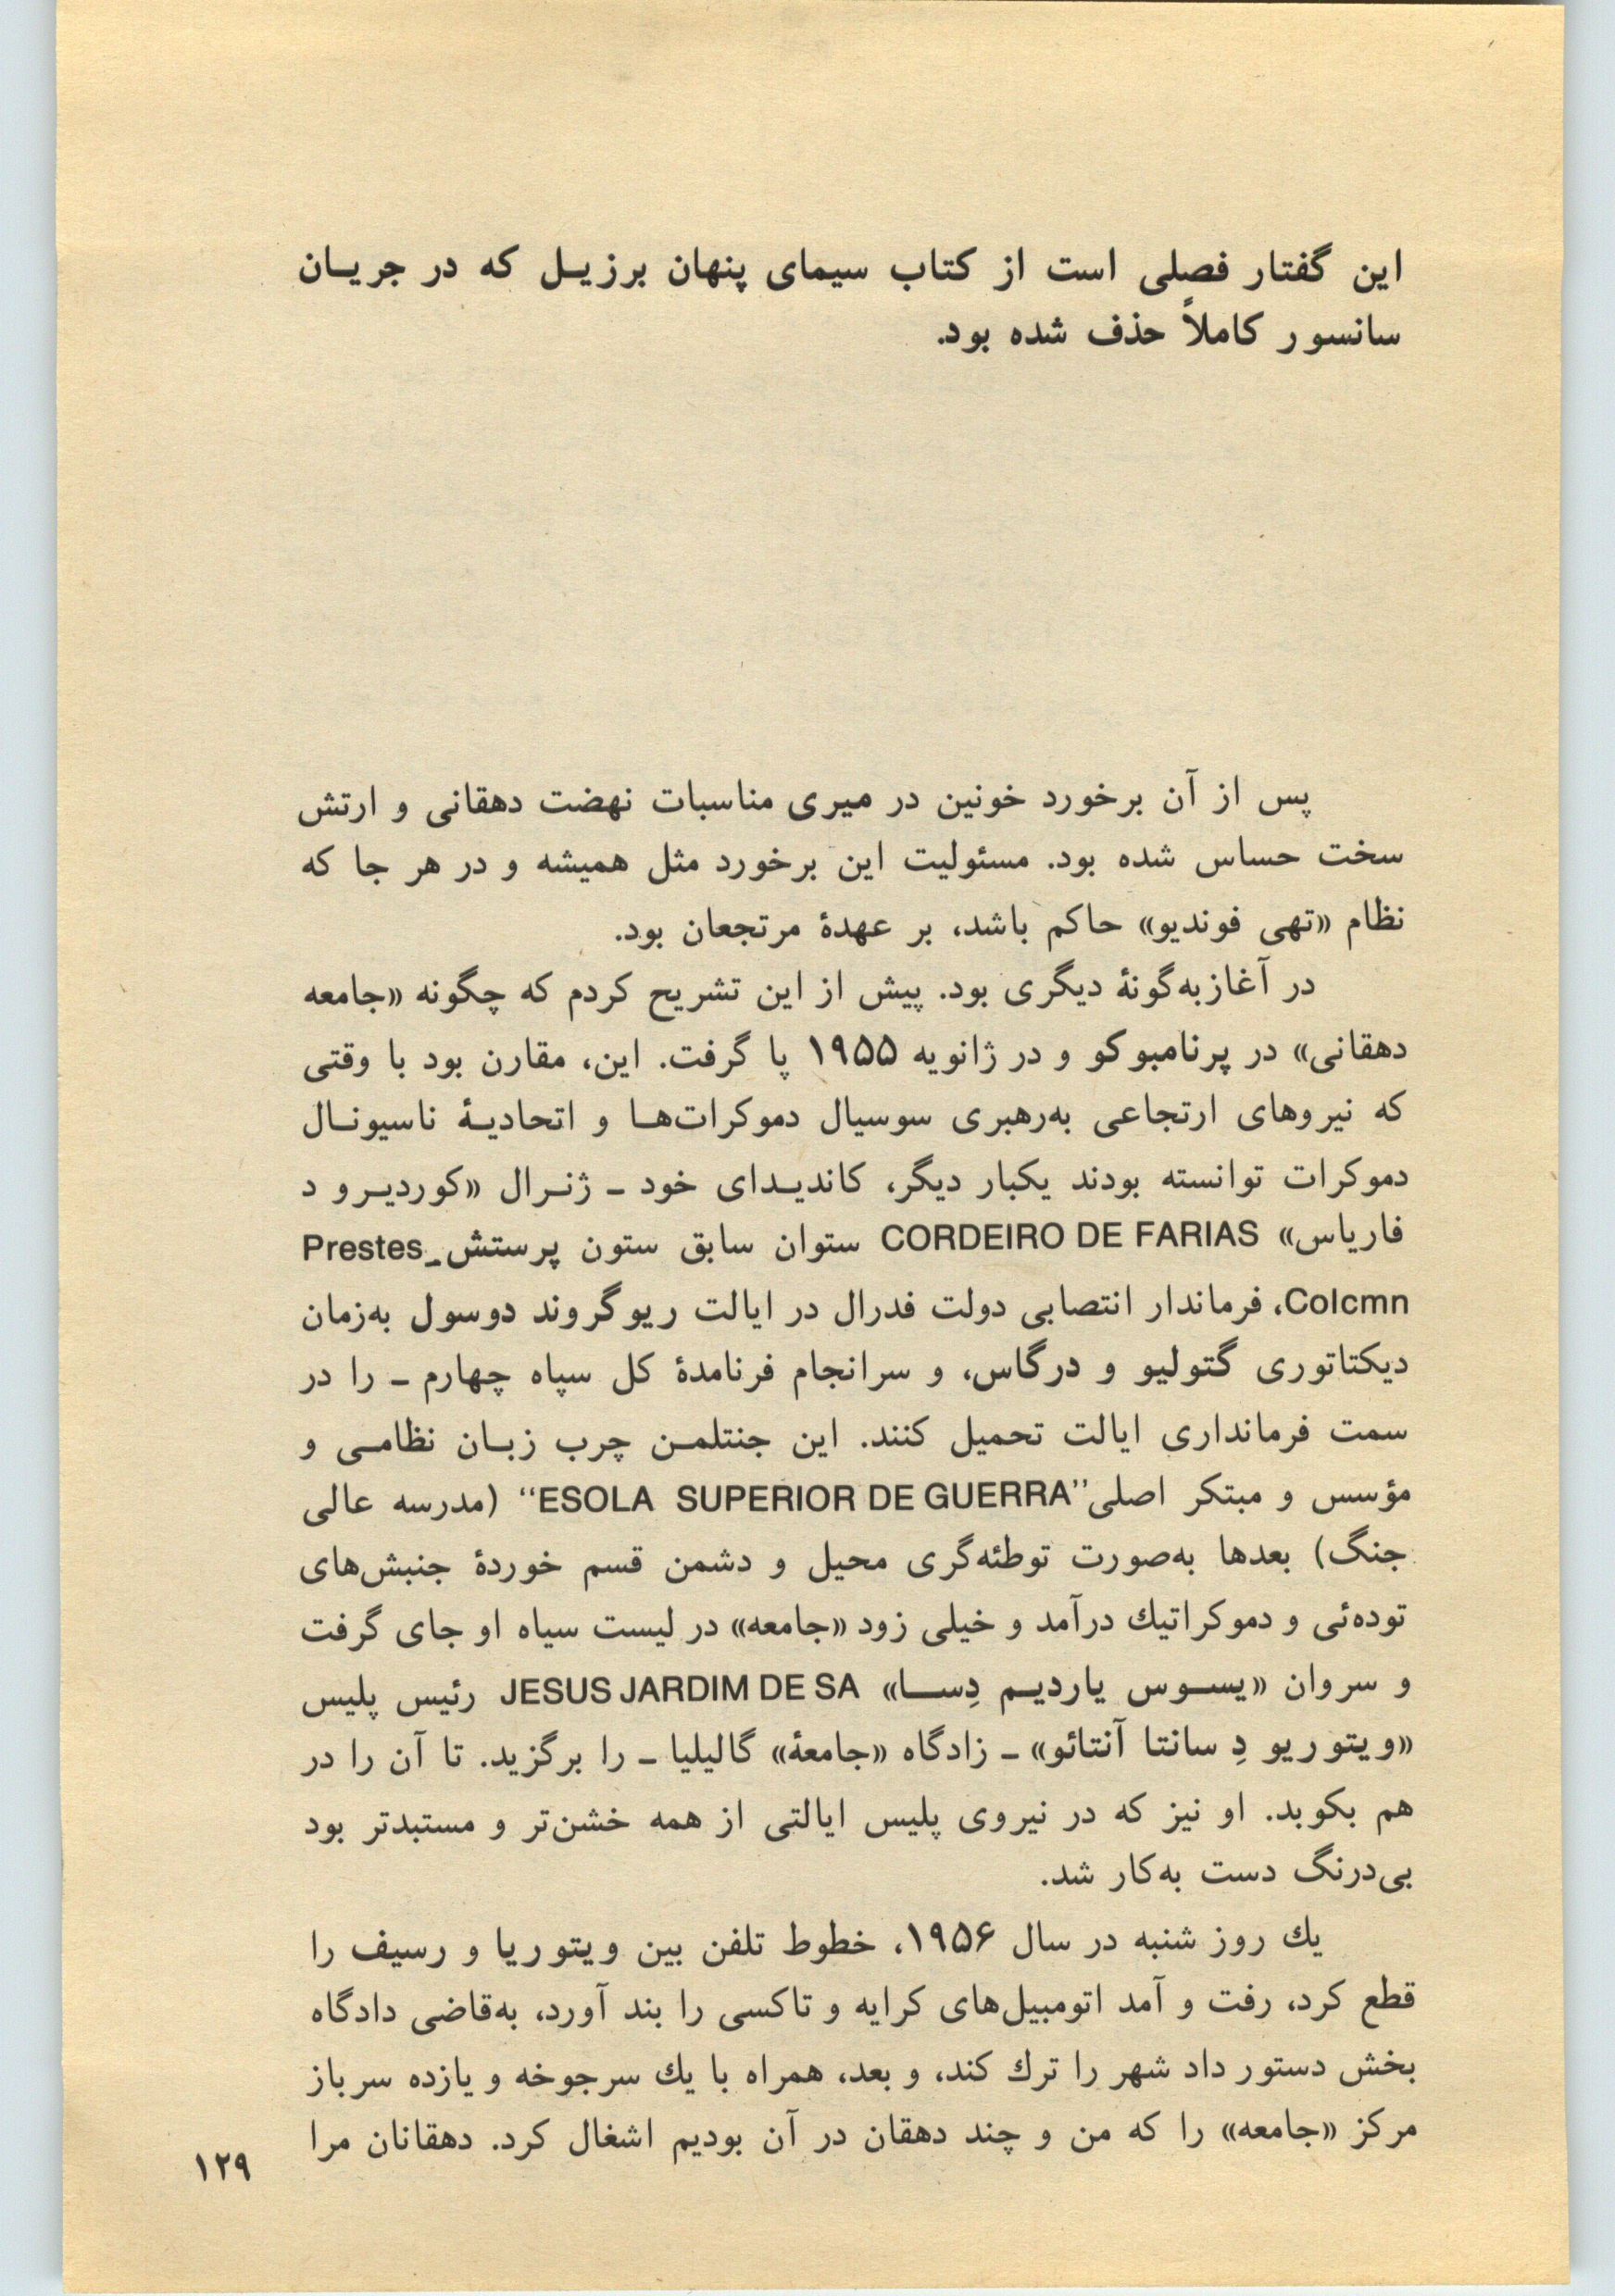 این گفتار فصلی است از کتاب سیمای پنهان برزیـل که در جریـان
سانسور کاملاً حذف شده بود.
پس از آن برخورد خونین در میری مناسبات نهضت دهقانی و ارتش
سخت حساس شده بود. مسئولیت این برخورد مثل همیشه و در هر جا که
نظام «تهی فوندیو» حاکم باشد، بر عهدهٔ مرتجعان بود.
در آغاز به‌گونهٔ دیگری بود. پیش از این تشریح کردم که چگونه «جامعه
دهقانی» در پرنامبوکو و در ژانویه ۱۹۵۵ پا گرفت. این، مقارن بود با وقتی
که نیروهای ارتجاعی به‌رهبری سوسیال دموکرات‌هـا و اتحادیـهٔ ناسیونـال
دموکرات توانسته بودند یکبار دیگر، کاندیـدای خود ـ ژنـرال «کوردیـرو د
فاریاس» CORDEIRO DE FARIAS ستوان سابق ستون پرستش_Prestes
Colcmn، فرماندار انتصابی دولت فدرال در ایالت ریوگروند دوسول به‌زمان
دیکتاتوری گتولیو و درگاس، و سرانجام فرنامدهٔ کل سپاه چهارم ـ را در
سمت فرمانداری ایالت تحمیل کنند. این جنتلمـن چرب زبـان نظامـی و
مؤسس و مبتکر اصلی ''ESOLA SUPERIOR DE GUERRA'' (مدرسه عالی
جنگ) بعدها به‌صورت توطئه‌گری محیل و دشمن قسم خوردهٔ جنبش‌های
توده‌ئی و دموکراتیك درآمد و خیلی زود «جامعه» در لیست سیاه او جای گرفت
و سروان «یسـوس یاردیـم دِسـا» JESUS JARDIM DE SA رئیس پلیس
«ویتوریو دِ سانتا آنتائو» ـ زادگاه «جامعهٔ» گالیلیا ـ را برگزید. تا آن را در
هم بکوبد. او نیز که در نیروی پلیس ایالتی از همه خشن‌تر و مستبدتر بود
بی‌درنگ دست به‌کار شد.
یك روز شنبه در سال ۱۹۵۶، خطوط تلفن بین ویتوریا و رسیف را
قطع کرد، رفت و آمد اتومبیل‌های کرایه و تاکسی را بند آورد، به‌قاضی دادگاه
بخش دستور داد شهر را ترك کند، و بعد، همراه با یك سرجوخه و یازده سرباز
مرکز «جامعه» را که من و چند دهقان در آن بودیم اشغال کرد. دهقانان مرا
۱۲۹